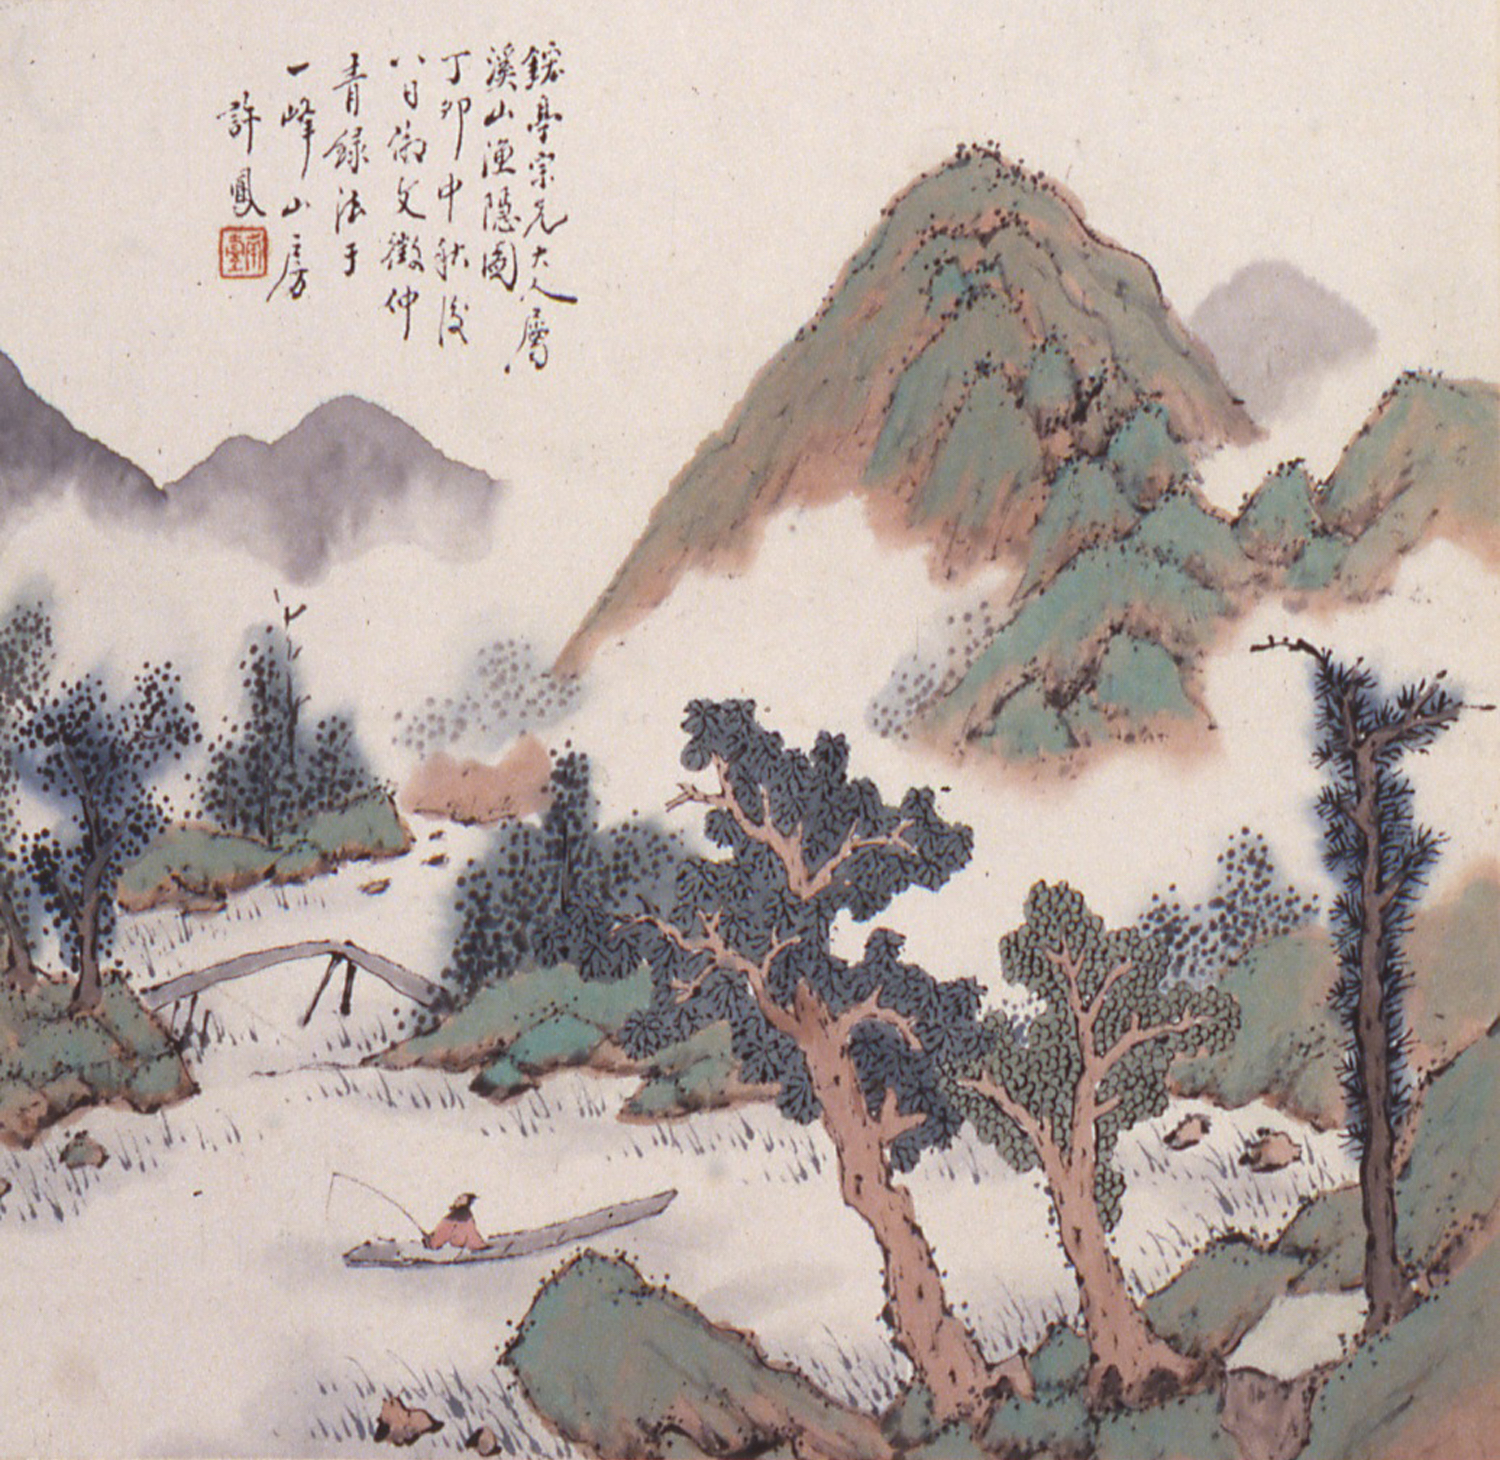 亭宗兄大人屬
溪山漁隱圖
丁卯中秋後
八日倣文徵仲
青録法于
一峰山房
許鳳